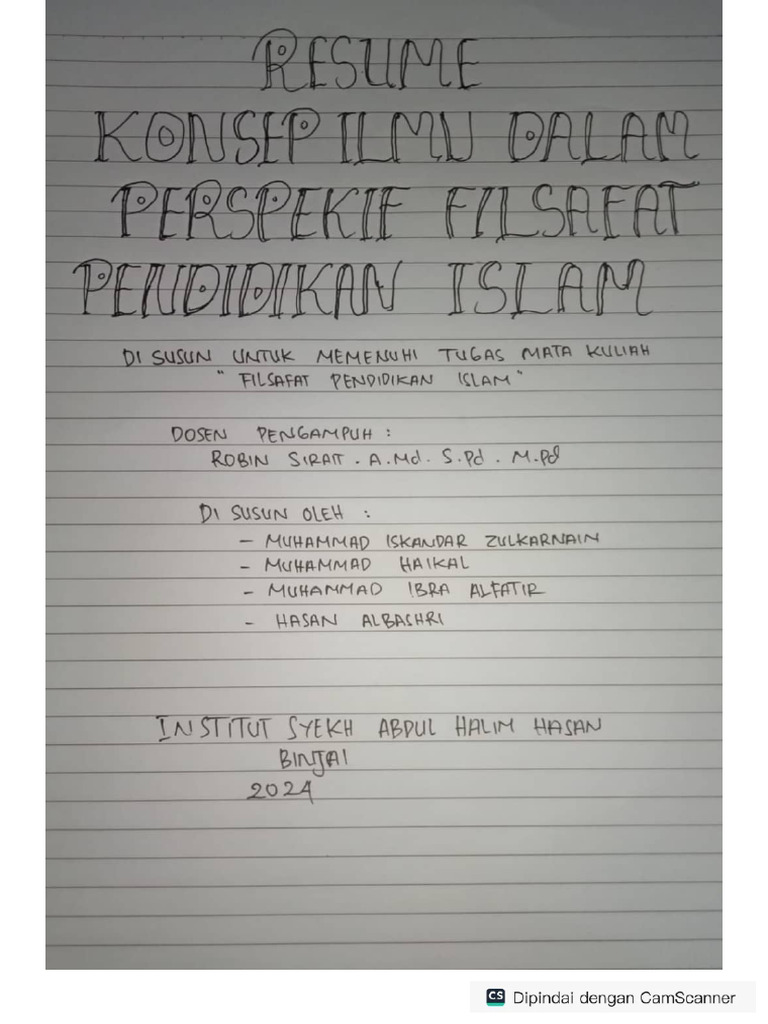 RESUME
KONSEP ILMU DALAM
PERSPEKIF FILSAFAT
PENDIDIKAN ISLAM
DI SUSUN UNTUK MEMENUHI TUGAS MATA KULIAH
" FILSAFAT PENDIDIKAN ISLAM "
DOSEN PENGAMPUH :
ROBIN SIRAIT . A.Md. S.Pd . M.Pd
DI SUSUN OLEH :
- MUHAMMAD ISKANDAR ZULKARNAIN
- MUHAMMAD HAIKAL
- MUHAMMAD IBRA ALFATIR
- HASAN ALBASHRI
INSTITUT SYEKH ABDUL HALIM HASAN
BINJAI
2024
CS Dipindai dengan CamScanner